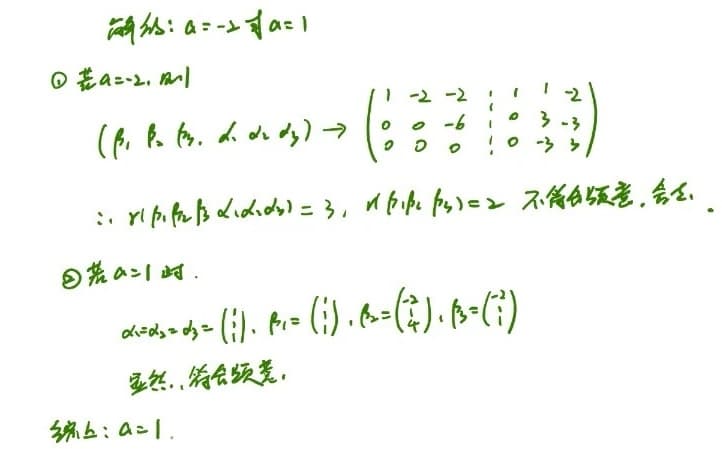 解得: a=-2或a=1
① 若a=-2, 则
(β₁ β₂ β₃, α₁ α₂ α₃) → ( 1 -2 -2 ⋮ 1 1 -2
0 0 -6 ⋮ 0 3 -3
0 0 0 ⋮ 0 -3 3 )
∴ r(β₁β₂β₃ α₁α₂α₃) = 3, r(β₁β₂ β₃) = 2 不符合题意, 舍去.
② 若a=1时.
α₁=α₂=α₃= (1 1 1), β₁= (1 1 1), β₂= (-2 1 4), β₃= (-2 1 1)
显然, 符合题意.
综上: a=1.